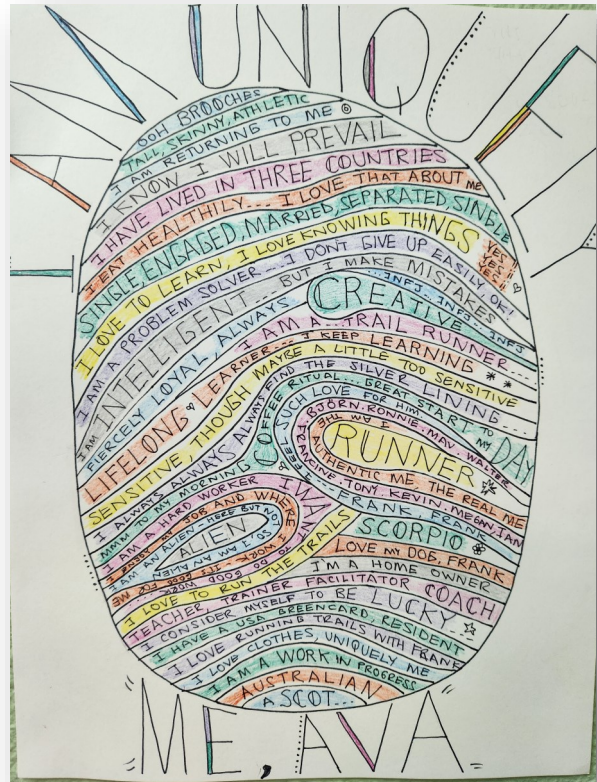 A UNIQUE
OOH BROOCHES
TALL, SKINNY, ATHLETIC
I AM RETURNING TO ME
I KNOW I WILL PREVAIL
I HAVE LIVED IN THREE COUNTRIES
I EAT HEALTHILY.... I LOVE THAT ABOUT ME
SINGLE ENGAGED, MARRIED, SEPARATED, SINGLE
YES!! YES!! YES!!
I LOVE TO LEARN, I LOVE KNOWING THINGS
I AM A PROBLEM SOLVER... I DON'T GIVE UP EASILY, OK!
I AM INTELLIGENT... BUT I MAKE MISTAKES
FIERCELY LOYAL, ALWAYS
...INFJ...INFJ...INFJ...INFJ
CREATIVE
LIFELONG LEARNER... I KEEP LEARNING
I AM A... TRAIL RUNNER...
SENSITIVE, THOUGH MAYBE A LITTLE TOO SENSITIVE
I ALWAYS ALWAYS ALWAYS FIND THE SILVER LINING...
MMM TO MY MORNING COFFEE RITUAL... GREAT START TO MY DAY
FREE, SUCH LOVE FOR HIM
FRANCINE, BJÖRN, RONNIE, MAV, WALTER
I AM THE AUTHENTIC ME, THE REAL ME
RUNNER
TONY, KEVIN, MEGAN, IAN
FRANK FRANK
I AM A HARD WORKER
I WANT TO DO GOOD WORK
JOB AND WHERE I WORK
I AM AN ALIEN - HERE BUT NOT
SO I AM AN ALIEN
ALIEN
SCORPIO
I LOVE TO RUN THE TRAILS
LOVE MY DOG, FRANK
I'M A HOME OWNER
TEACHER, TRAINER FACILITATOR COACH
I CONSIDER MYSELF TO BE LUCKY
I HAVE A USA GREENCARD, RESIDENT
I LOVE RUNNING TRAILS WITH FRANK
I LOVE CLOTHES, UNIQUELY ME
I AM A WORK IN PROGRESS
AUSTRALIAN
A SCOT...
ME, AVA